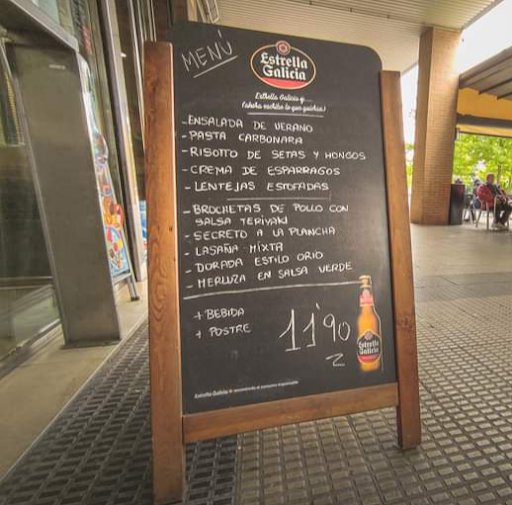 MENÚ
Estrella
Galicia
Estrella Galicia y...
(ahora escribe lo que quieras)
-ENSALADA DE VERANO
-PASTA CARBONARA
-RISOTTO DE SETAS Y HONGOS
-CREMA DE ESPARRAGOS
-LENTEJAS ESTOFADAS
-BROCHETAS DE POLLO CON
SALSA TERIYAKI
-SECRETO A LA PLANCHA
-LASAÑA MIXTA
-DORADA ESTILO ORIO
-MERLUZA EN SALSA VERDE
+ BEBIDA
+ POSTRE
11'90
Estrella
Galicia